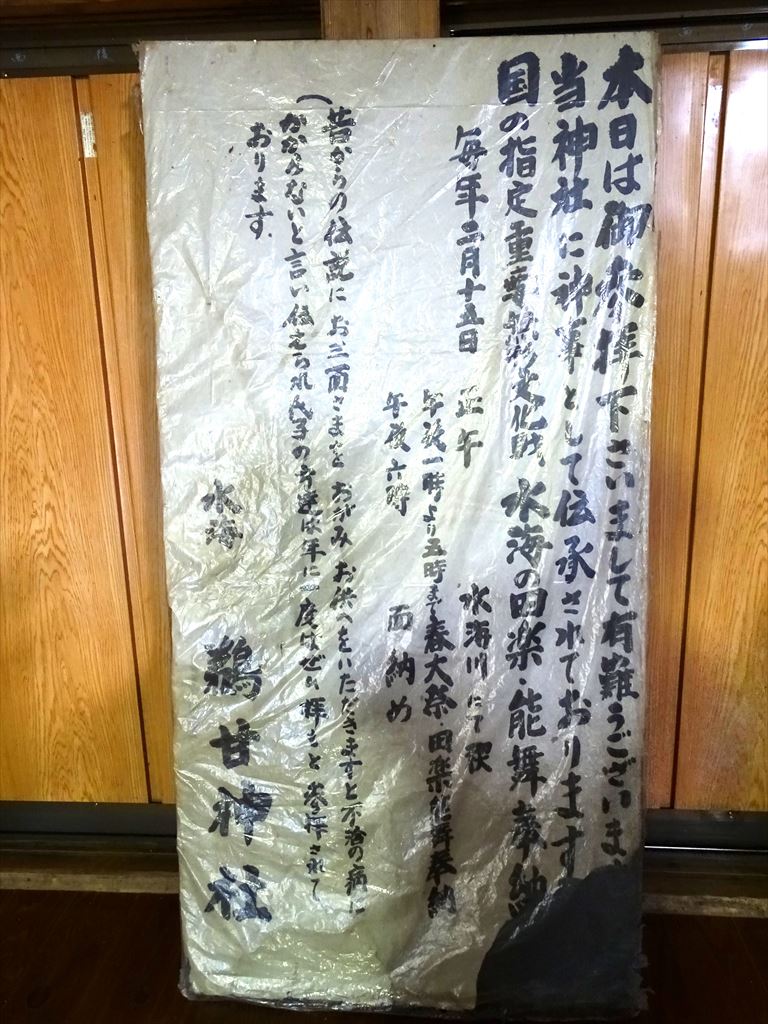 本日は御参拝下さいまして有難うございます
当神社に神事として伝承されております
国の指定重要無形文化財 水海の田楽・能舞奉納
毎年二月十五日 正午 水海川にて禊
午後一時より五時まで春大祭・田楽能舞奉納
午後六時 面納め
(昔からの伝説にお三面さまをおがみお供へをいただきますと不治の病に
かからないと言い伝えられ氏子の方達は年に一度はぜひ拝もと参拝されて
おります。
水海 鵜甘神社